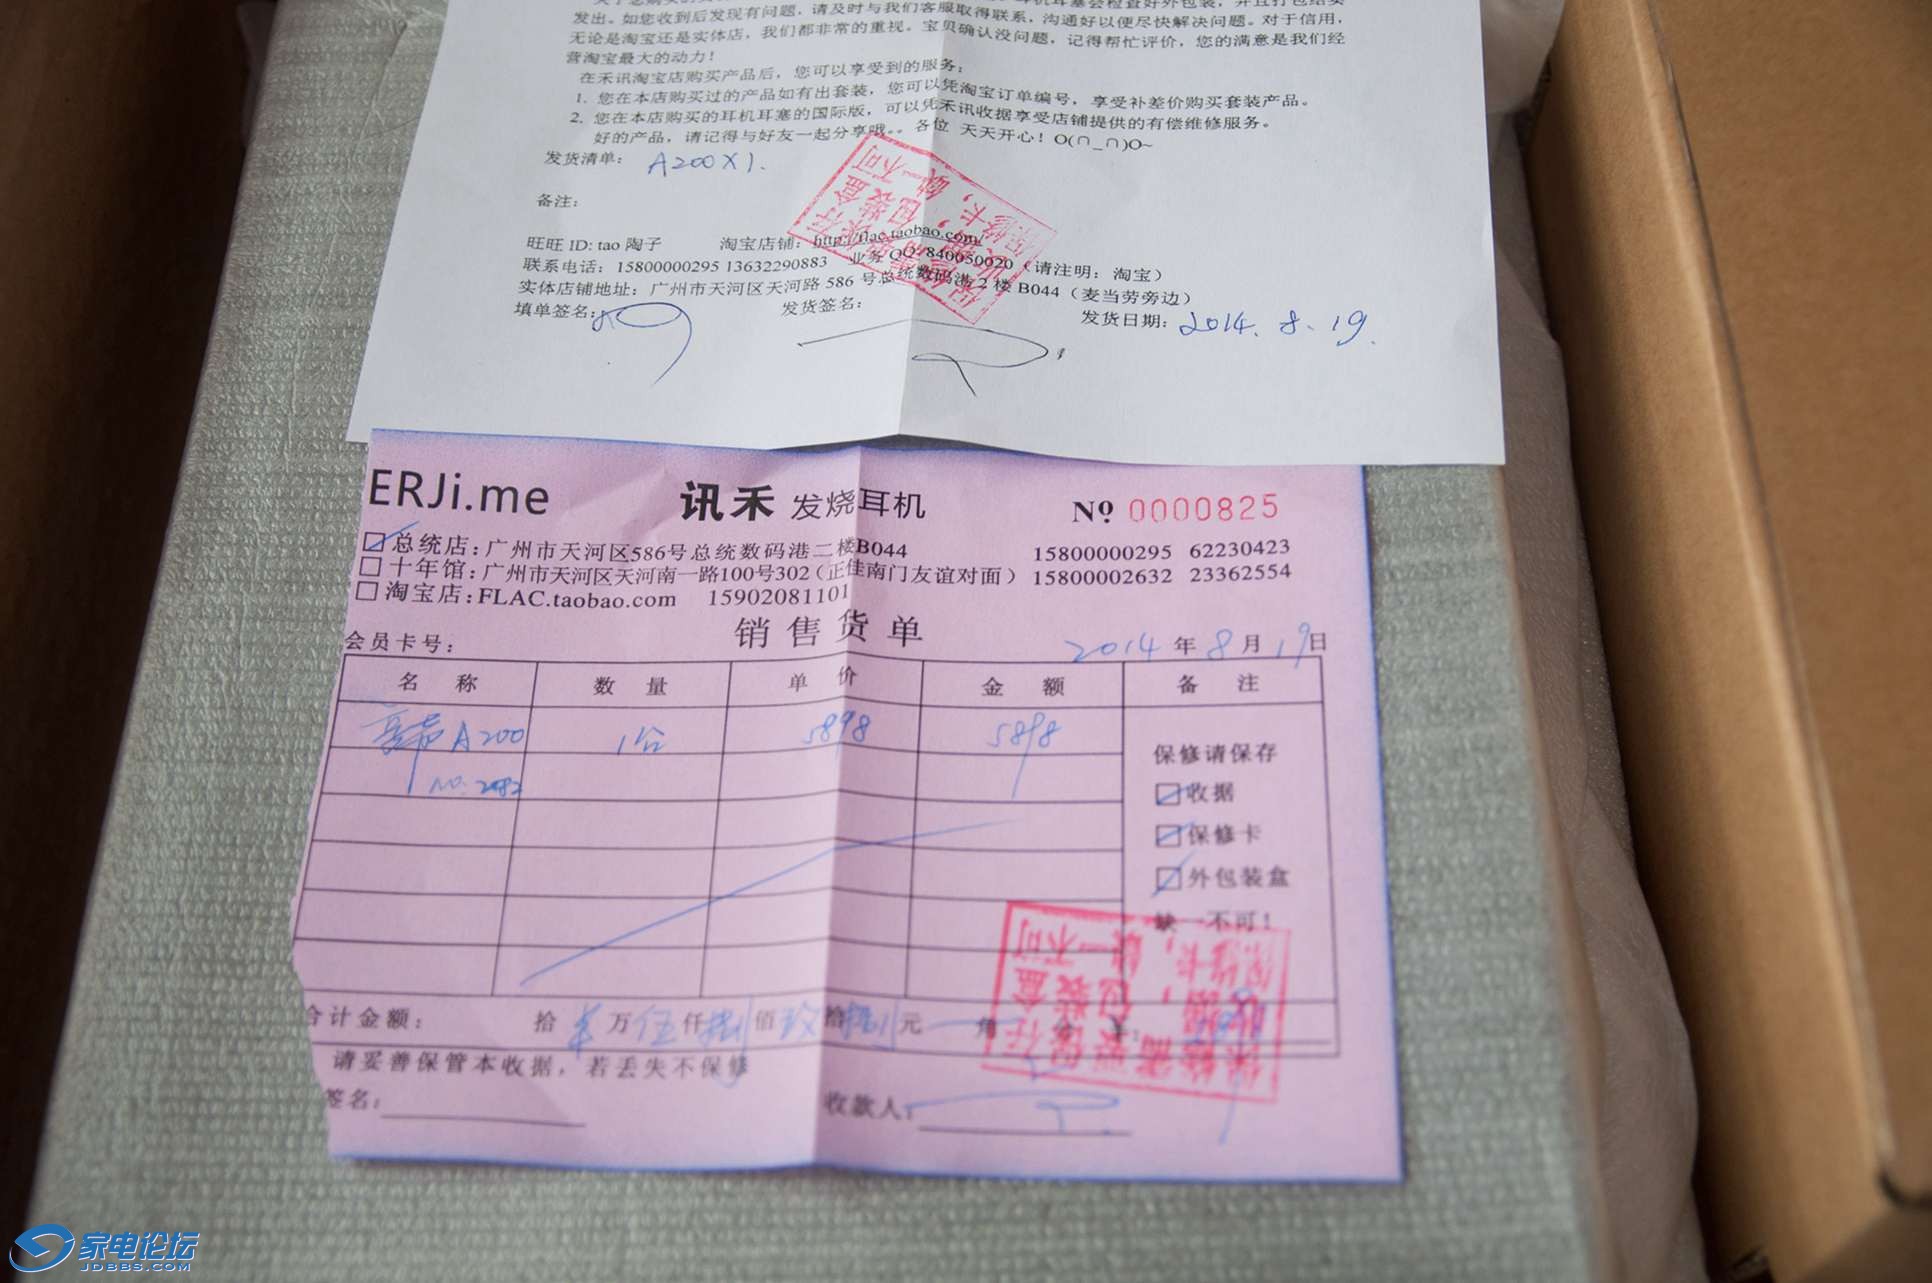 发出。如您收到后发现有问题，请及时与我们客服取得联系，沟通好以便尽快解决问题。对于信用，
无论是淘宝还是实体店，我们都非常的重视。宝贝确认没问题，记得帮忙评价，您的满意是我们经
营淘宝最大的动力！
在禾讯淘宝店购买产品后，您可以享受到的服务：
1. 您在本店购买过的产品如有出套装，您可以凭淘宝订单编号，享受补差价购买套装产品。
2. 您在本店购买的耳机耳塞的国际版，可以凭禾讯收据享受店铺提供的有偿维修服务。
好的产品，请记得与好友一起分享哦。。各位 天天开心！O(∩_∩)O~
发货清单： A200X1.
备注：
旺旺 ID: tao 陶子 淘宝店铺：http://flac.taobao.com/
联系电话：15800000295 13632290883 业务 QQ:840050020（请注明：淘宝）
实体店铺地址：广州市天河区天河路 586 号总统数码港 2 楼 B044（麦当劳旁边）
填单签名： 发货签名： 发货日期：2014.8.19.
保修需要保存
收据，包装盒
保修卡，缺一不可
ERJi.me 讯禾 发烧耳机 № 0000825
总统店：广州市天河区586号总统数码港二楼B044 15800000295 62230423
十年馆：广州市天河区天河南一路100号302（正佳南门友谊对面） 15800002632 23362554
淘宝店：FLAC.taobao.com 15902081101
销售货单
会员卡号： 2014 年 8 月 19 日
名称 数量 单价 金额 备注
A200 1台 5898 5898
保修请保存
收据
保修卡
外包装盒
缺一不可！
合计金额： 拾 万 伍 仟 捌 佰 玖 拾 捌 元 角
请妥善保管本收据，若丢失不保修
签名： 收款人：
保修需要保存
收据，包装盒
保修卡，缺一不可
家电论坛
JDBBS.COM